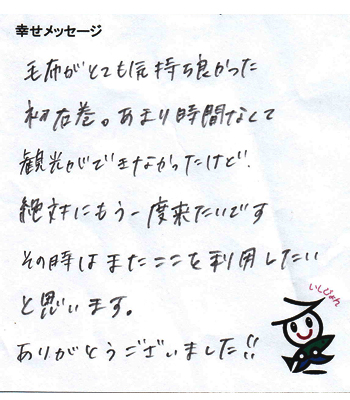 幸せメッセージ
毛布がとても気持ち良かった
初左巻。あまり時間なくて
観光ができなかったけど、
絶対にもう一度来たいです
その時はまたここを利用したい
と思います。
ありがとうございました!!
いしぴょん